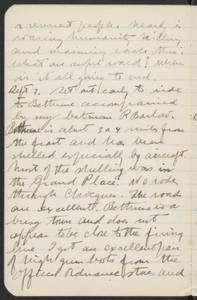 a reverent people. nearly in
roaring humanity killing
and maiming each other.
What an awful word! When
is it all going to end.
Sept 2. Set out early to ride
to Bethune accompanied
by my batman R Barlow.
Bethune is about 3 or 4 miles from
the front and has been
shelled especially by aircraft
Most of the shelling was in
the Grand Place. We rode
through Chocques. The road
an excellent. Bethune is a
busy town and does not
appear to be close to the firing
line. I got an excellent pair
of high gum boots from the
officers Ordnance store and